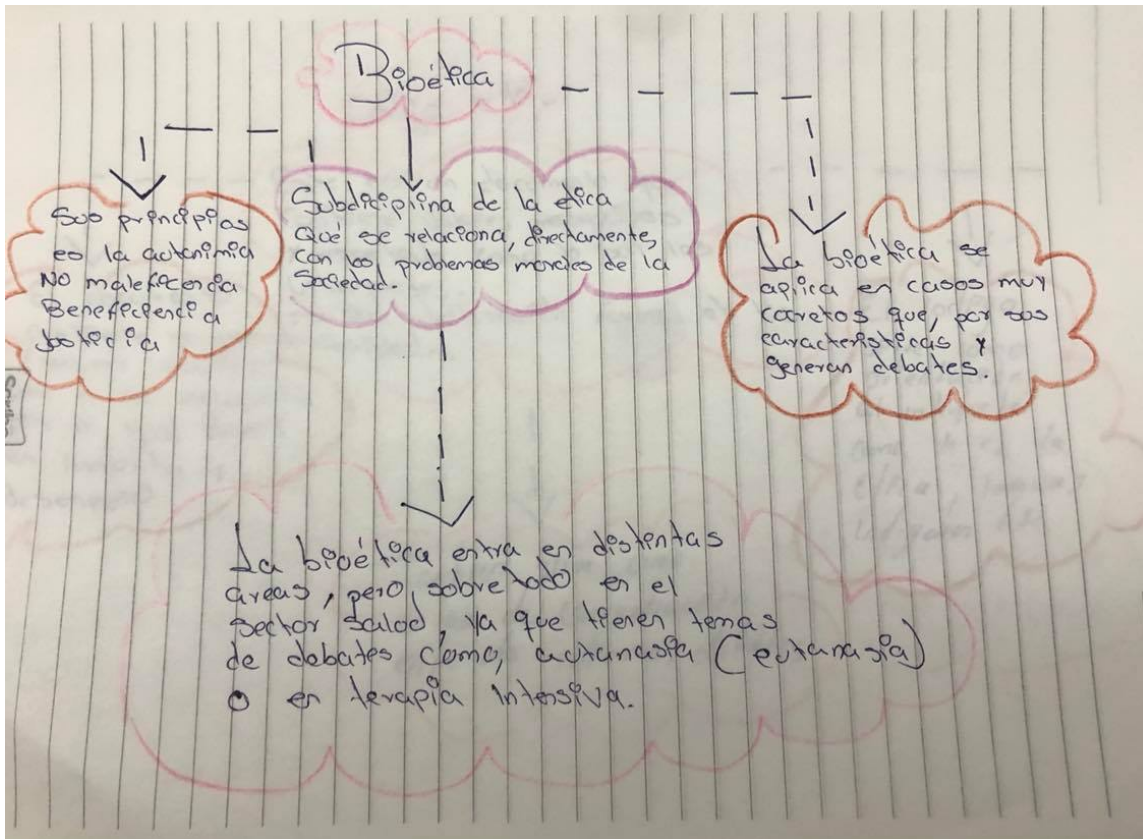 Bioética
Sus principios
es la autonimia
No maleficencia
Beneficiencia
Justicia
Subdiciplina de la etica
Qué se relaciona, directamente,
con los problemas morales de la
Sociedad.
La bioética se
aplica en casos muy
cocretos que, por sus
características y
generan debates.
La bioética entra en distintas
áreas, pero, sobre todo en el
Sector Salud, ya que tienen temas
de debates como, autanasia (eutanasia)
O en terapia intensiva.